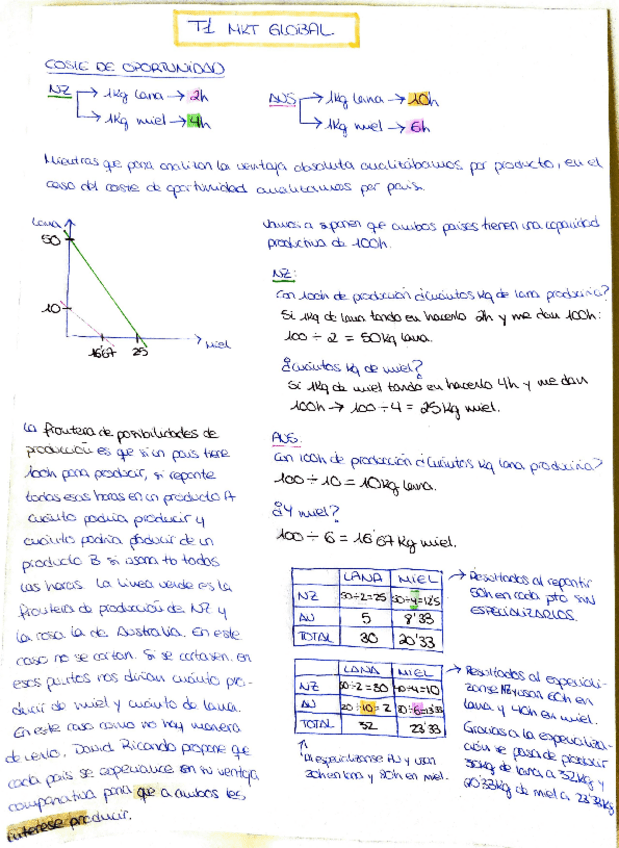 T1 MKT GLOBAL
COSTE DE OPORTUNIDAD
NZ → 1Kg lana → 2h
→ 1Kg miel → 4h
AUS → 1Kg lana → 10h
→ 1Kg miel → 6h
Mientras que para analizar la ventaja absoluta analizábamos por producto, en el
caso del coste de oportunidad analizamos por país.
Lana
50
10
16'67 25
Miel
Vamos a suponer que ambos países tienen una capacidad
productiva de 100h.
NZ:
Con 100h de producción ¿cuántos Kg de lana produciría?
Si 1Kg de lana tardo en hacerlo 2h y me dan 100h:
100 ÷ 2 = 50Kg lana.
¿Cuántos Kg de miel?
Si 1Kg de miel tardo en hacerlo 4h y me dan
100h → 100 ÷ 4 = 25Kg miel.
AUS.
Con 100h de producción ¿Cuántos Kg lana produciría?
100 ÷ 10 = 10Kg lana.
¿Y miel?
100 ÷ 6 = 16'67 Kg miel.
La frontera de posibilidades de
producción es que si un país tiene
100h para producir, si reparte
todas esas horas en un producto A
cuánto podría producir y
cuánto podría producir de un
producto B si usara to todas
las horas. La línea verde es la
frontera de producción de NZ y
la rosa la de Australia. En este
caso no se cortan. Si se cortasen. en
esos puntos nos dirían cuánto pro-
ducir de miel y cuánto de lana.
En este caso como no hay manera
de verlo, David Ricardo propone que
cada país se especialice en su ventaja
comparativa para que a ambos les
interese producir.
LANA MIEL
NZ 50÷2=25 50÷4=12'5
AU 5 8'33
TOTAL 30 20'33
→ Resultados al repartir
50h en cada pto SIN
ESPECIALIZARLOS.
LANA MIEL
NZ 60÷2=30 40÷4=10
AU 20÷10=2 80÷6=13'33
TOTAL 32 23'33
→ Resultados al especiali-
zarse NZ y usan 60h en
lana y 40h en miel.
Gracias a la especializa-
ción se pasa de producir
30kg de lana a 32kg y
20'33kg de miel a 23'33kg
Al especializarse AU y usan
20h en lana y 80h en miel.